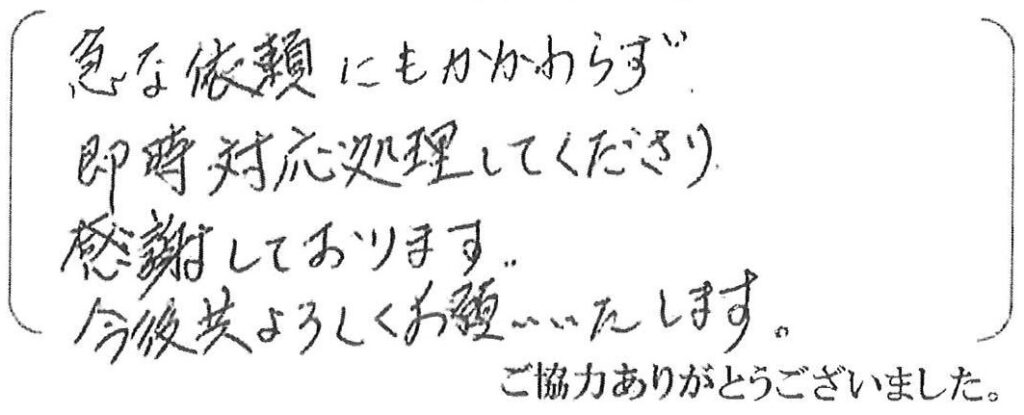 急な依頼にもかかわらず
即時対応処理してくださり
感謝しております。
今後共よろしくお願いいたします。
ご協力ありがとうございました。